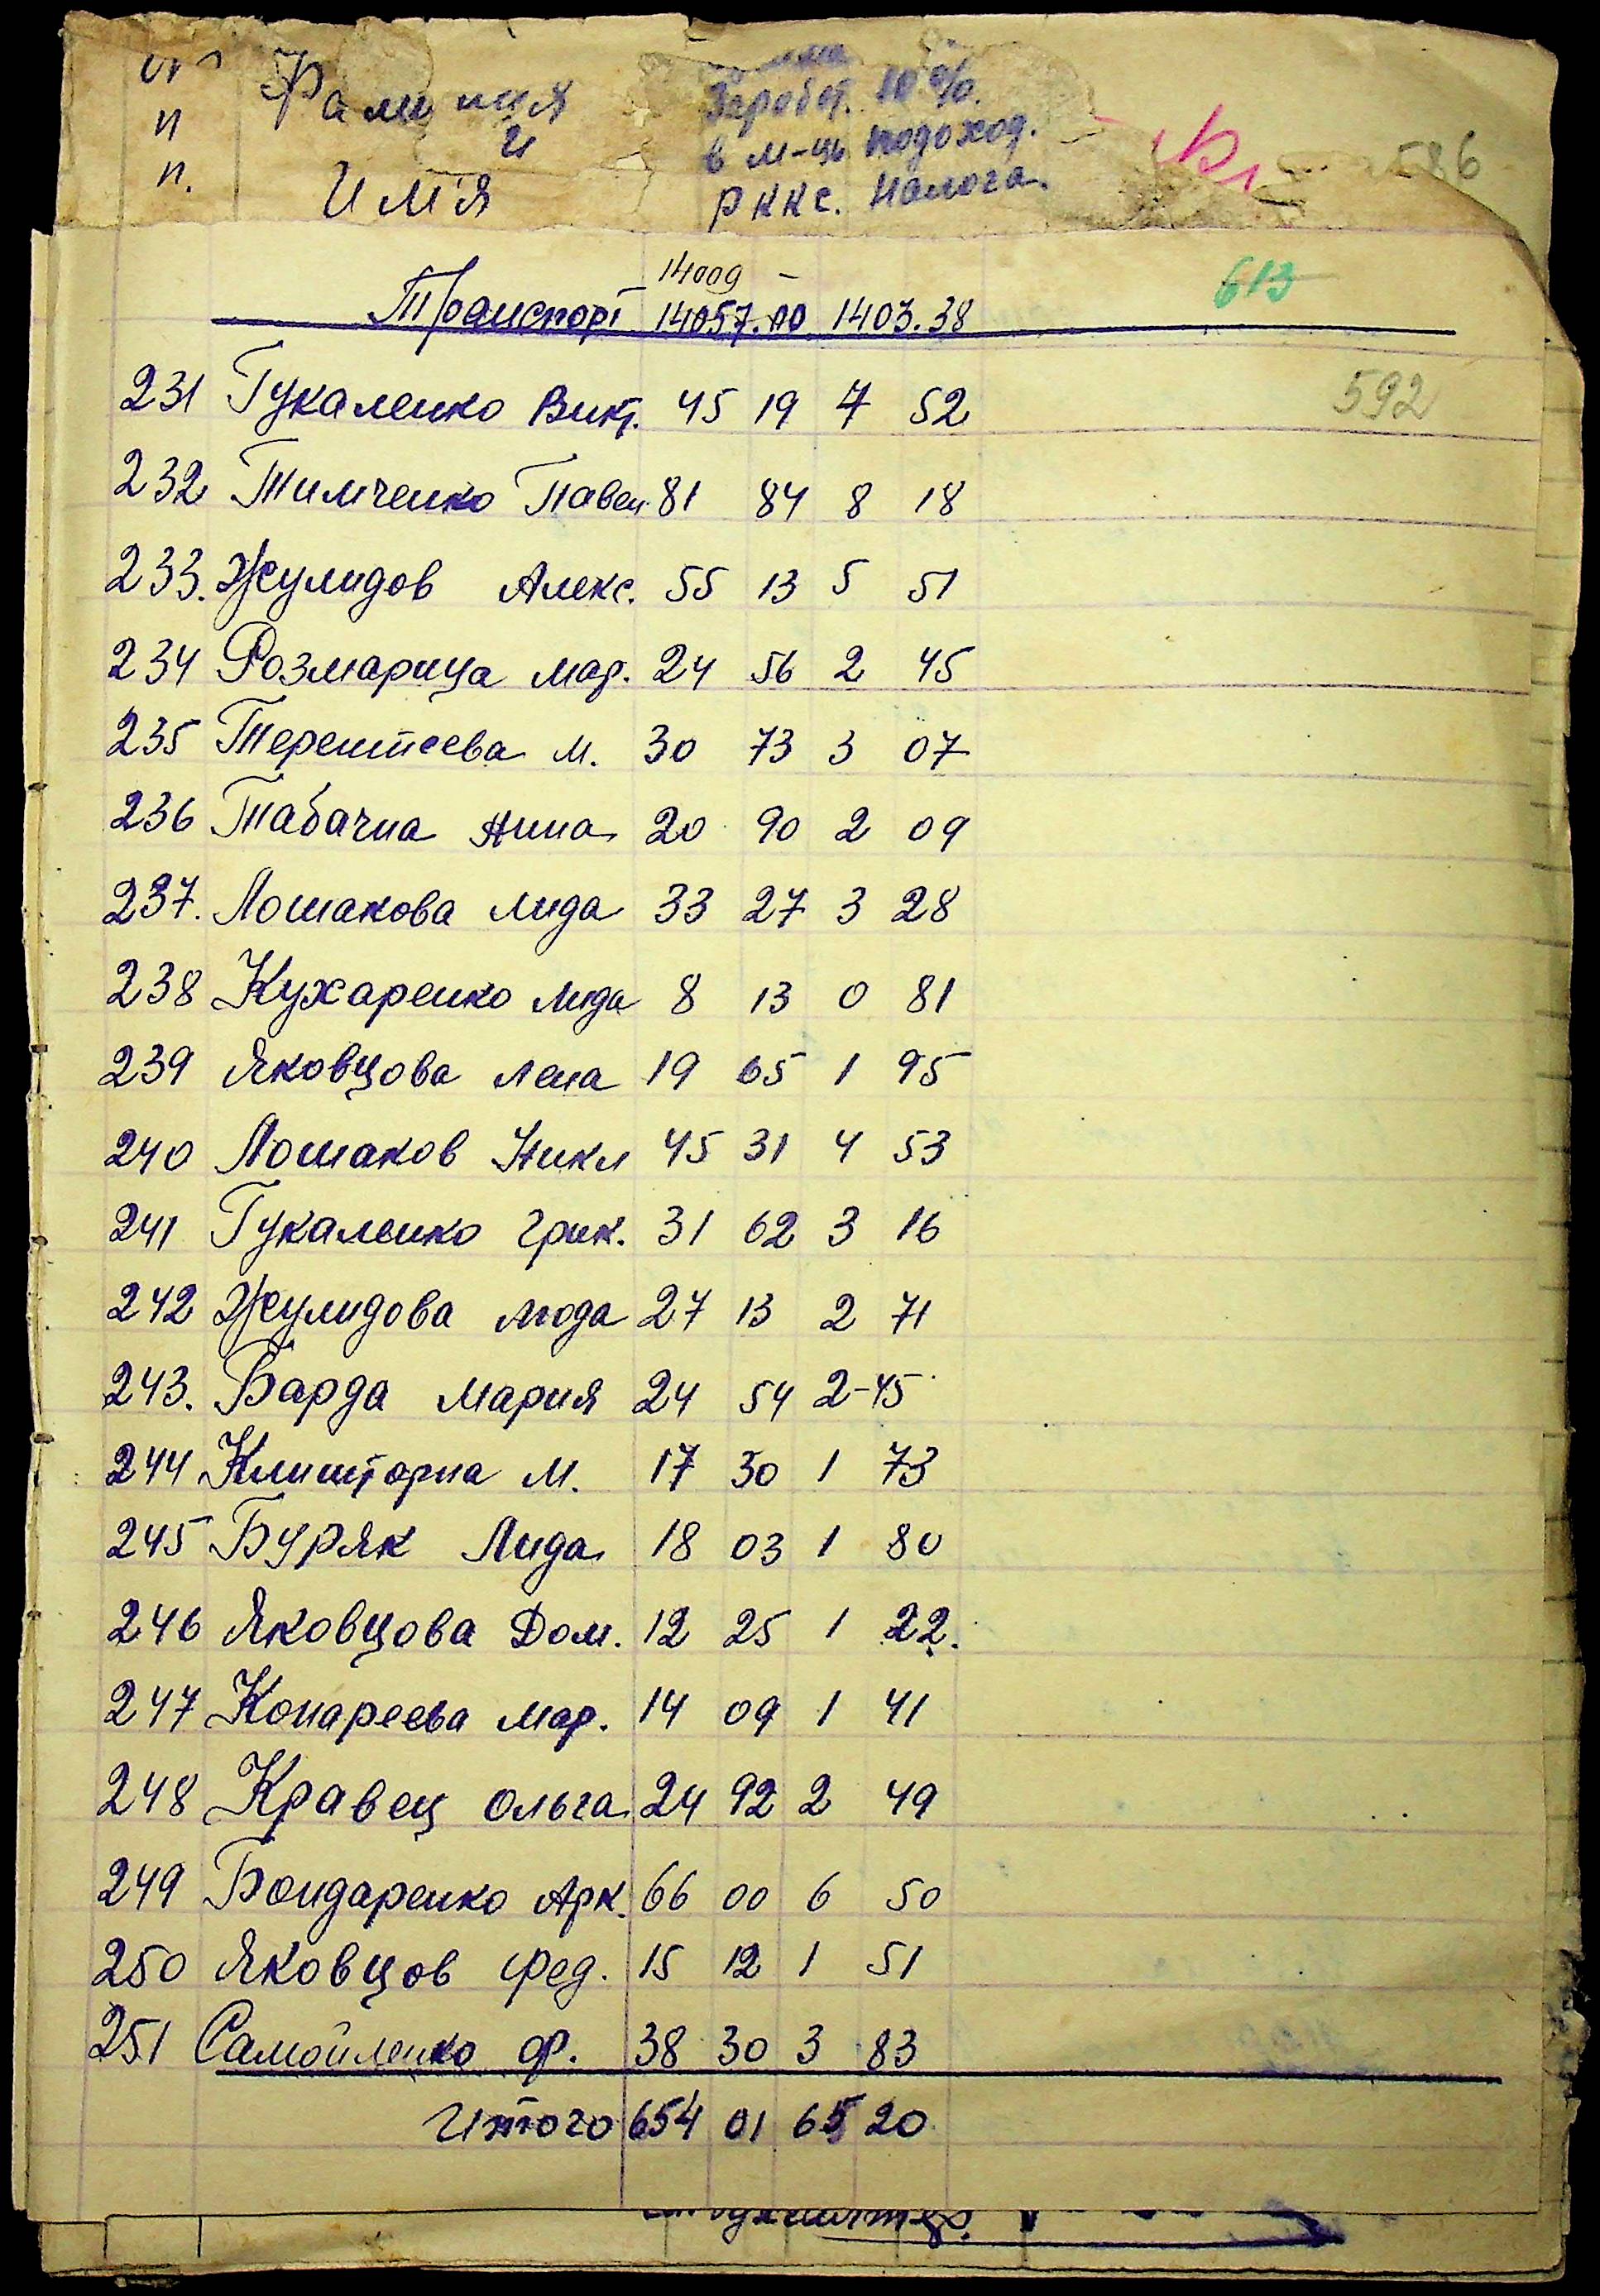 п
п.
Фамилия
и
Имя
Заработ. 10%
в м-ць подоход.
РККС. Налога.
586
14009 -
613
Транспорт 14057.00 1403.38
592
231 Гукаленко Викт. 45 19 4 52
232 Тимченко Павел 81 84 8 18
233. Жулидов Алекс. 55 13 5 51
234 Розмарица Мар. 24 56 2 45
235 Терентеева М. 30 73 3 07
236 Табачна Нина 20 90 2 09
237. Лошакова Лида 33 27 3 28
238 Кухаренко Лида 8 13 0 81
239 Яковцова Лена 19 65 1 95
240 Лошаков Никл 45 31 4 53
241 Гукаленко Грик. 31 62 3 16
242 Жулидова Люда 27 13 2 71
243. Барда Мария 24 54 2-45
244 Клишторна М. 17 30 1 73
245 Буряк Лида 18 03 1 80
246 Яковцова Дом. 12 25 1 22.
247 Конареева Мар. 14 09 1 41
248 Кравец Ольга 24 92 2 49
249 Бондаренко Арк. 66 00 6 50
250 Яковцов Фед. 15 12 1 51
251 Самойленко Ф. 38 30 3 83
Итого 654 01 65 20